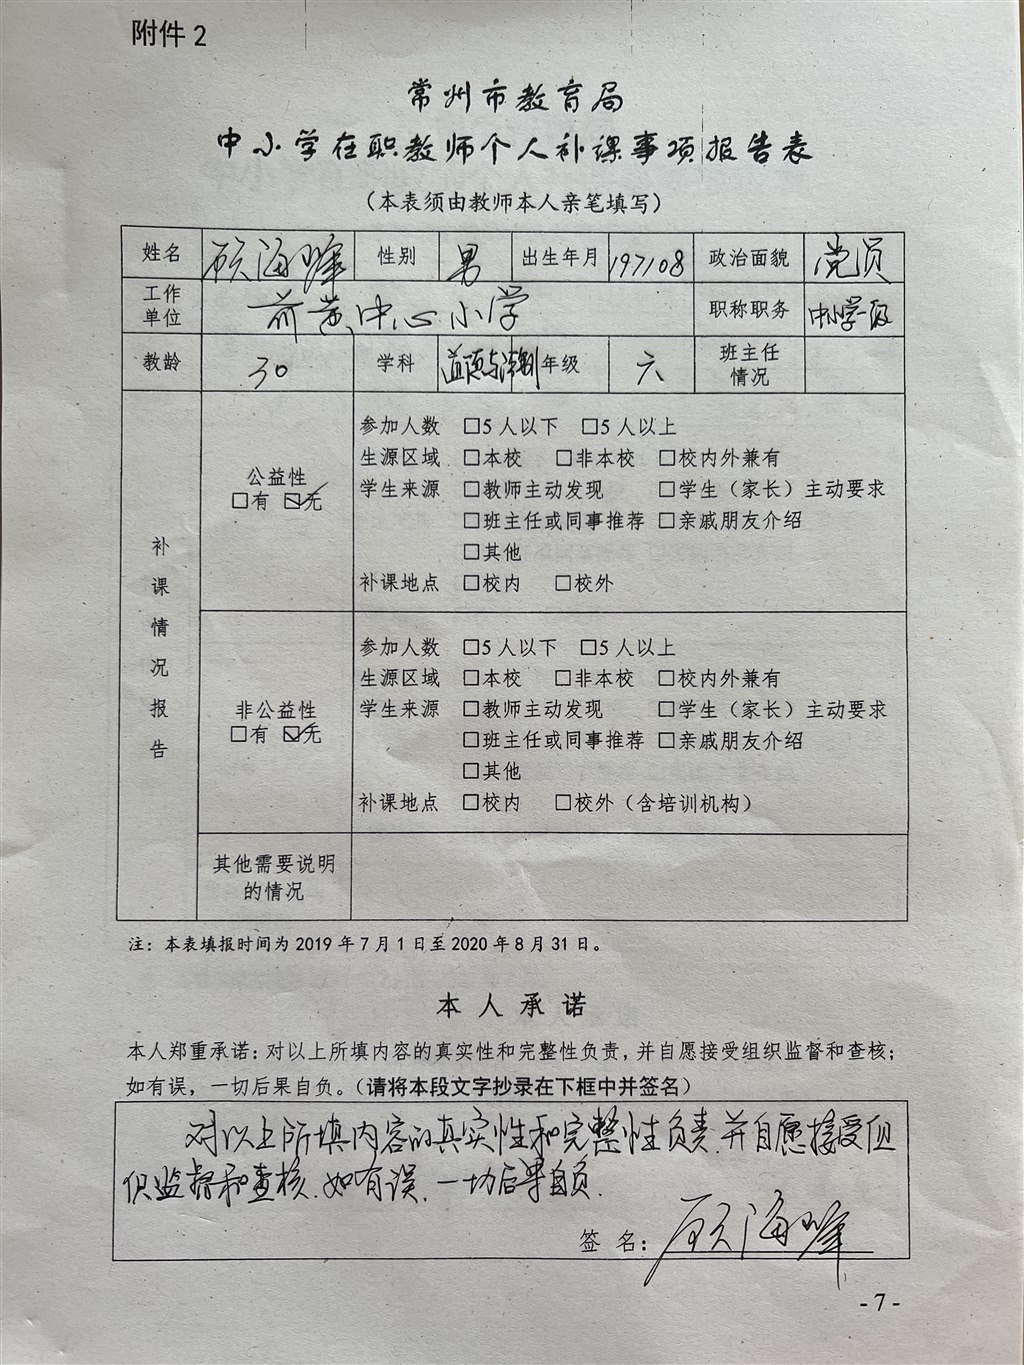 附件2
常州市教育局
中小学在职教师个人补课事项报告表
（本表须由教师本人亲笔填写）
姓名 顾海峰 性别 男 出生年月 197108 政治面貌 党员
工作单位 前黄中心小学 职称职务 中小学一级
教龄 30 学科 道德与法制 年级 六 班主任情况
补课情况报告
公益性
□有 ☑无
参加人数 □5人以下 □5人以上
生源区域 □本校 □非本校 □校内外兼有
学生来源 □教师主动发现 □学生（家长）主动要求
□班主任或同事推荐 □亲戚朋友介绍
□其他
补课地点 □校内 □校外
非公益性
□有 ☑无
参加人数 □5人以下 □5人以上
生源区域 □本校 □非本校 □校内外兼有
学生来源 □教师主动发现 □学生（家长）主动要求
□班主任或同事推荐 □亲戚朋友介绍
□其他
补课地点 □校内 □校外（含培训机构）
其他需要说明
的情况
注：本表填报时间为2019年7月1日至2020年8月31日。
本人承诺
本人郑重承诺：对以上所填内容的真实性和完整性负责，并自愿接受组织监督和查核；
如有误，一切后果自负。（请将本段文字抄录在下框中并签名）
对以上所填内容的真实性和完整性负责.并自愿接受组
织监督和查核.如有误.一切后果自负.
签名：顾海峰
-7-